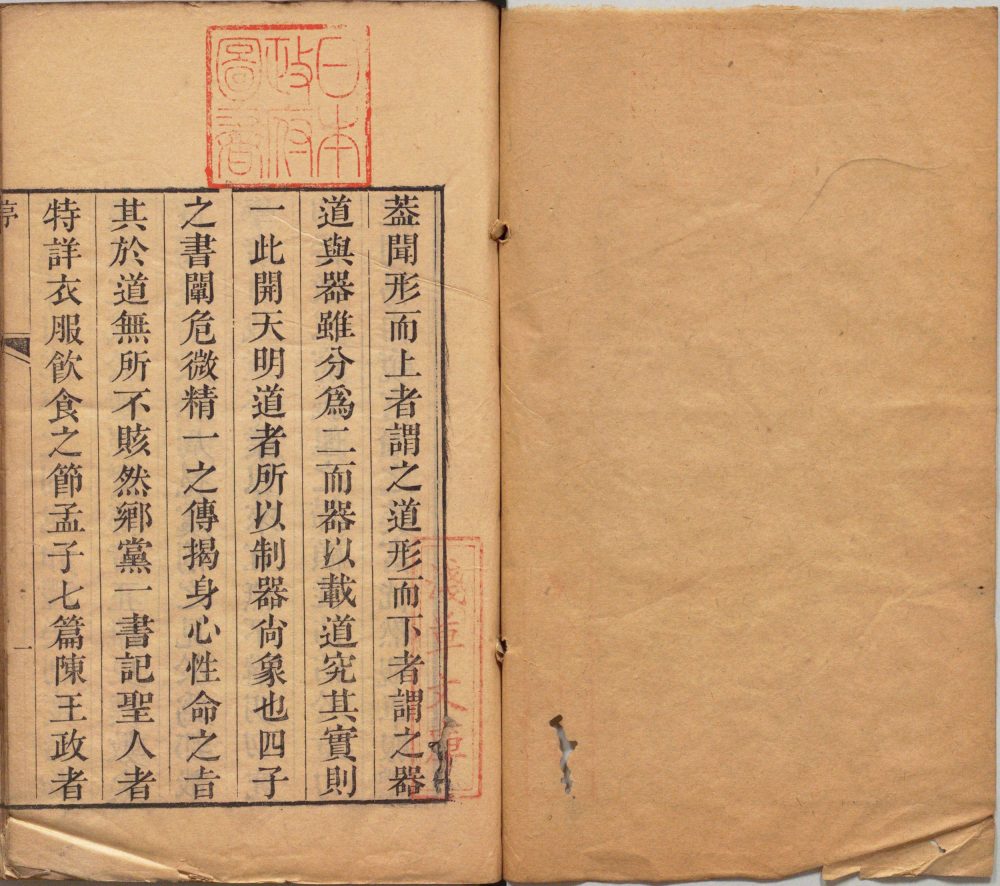 日本
政府
圖書
蓋聞形而上者謂之道形而下者謂之器
道與器雖分爲二而器以載道究其實則
一此開天明道者所以制器尙象也四子
之書闡危微精一之傳揭身心性命之旨
其於道無所不賅然鄕黨一書記聖人者
特詳衣服飮食之節孟子七篇陳王政者
一
淺草文庫